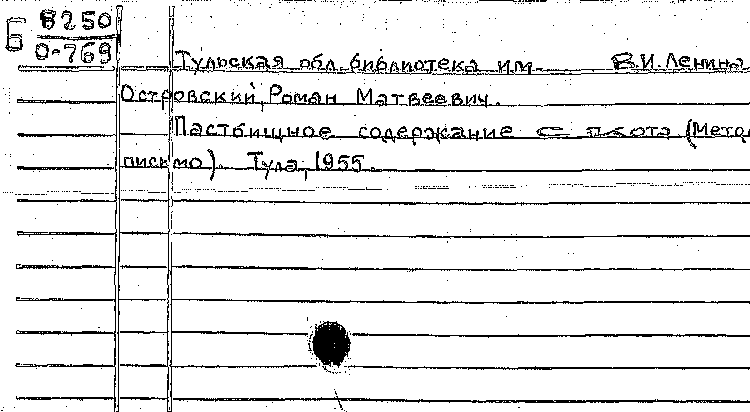 Б 8250
0-769
Тульская обл. библиотека им. В.И. Ленина
Островский, Роман Матвеевич.
Пастбищное содержание скота (Мето
письмо). Тула, 1955.